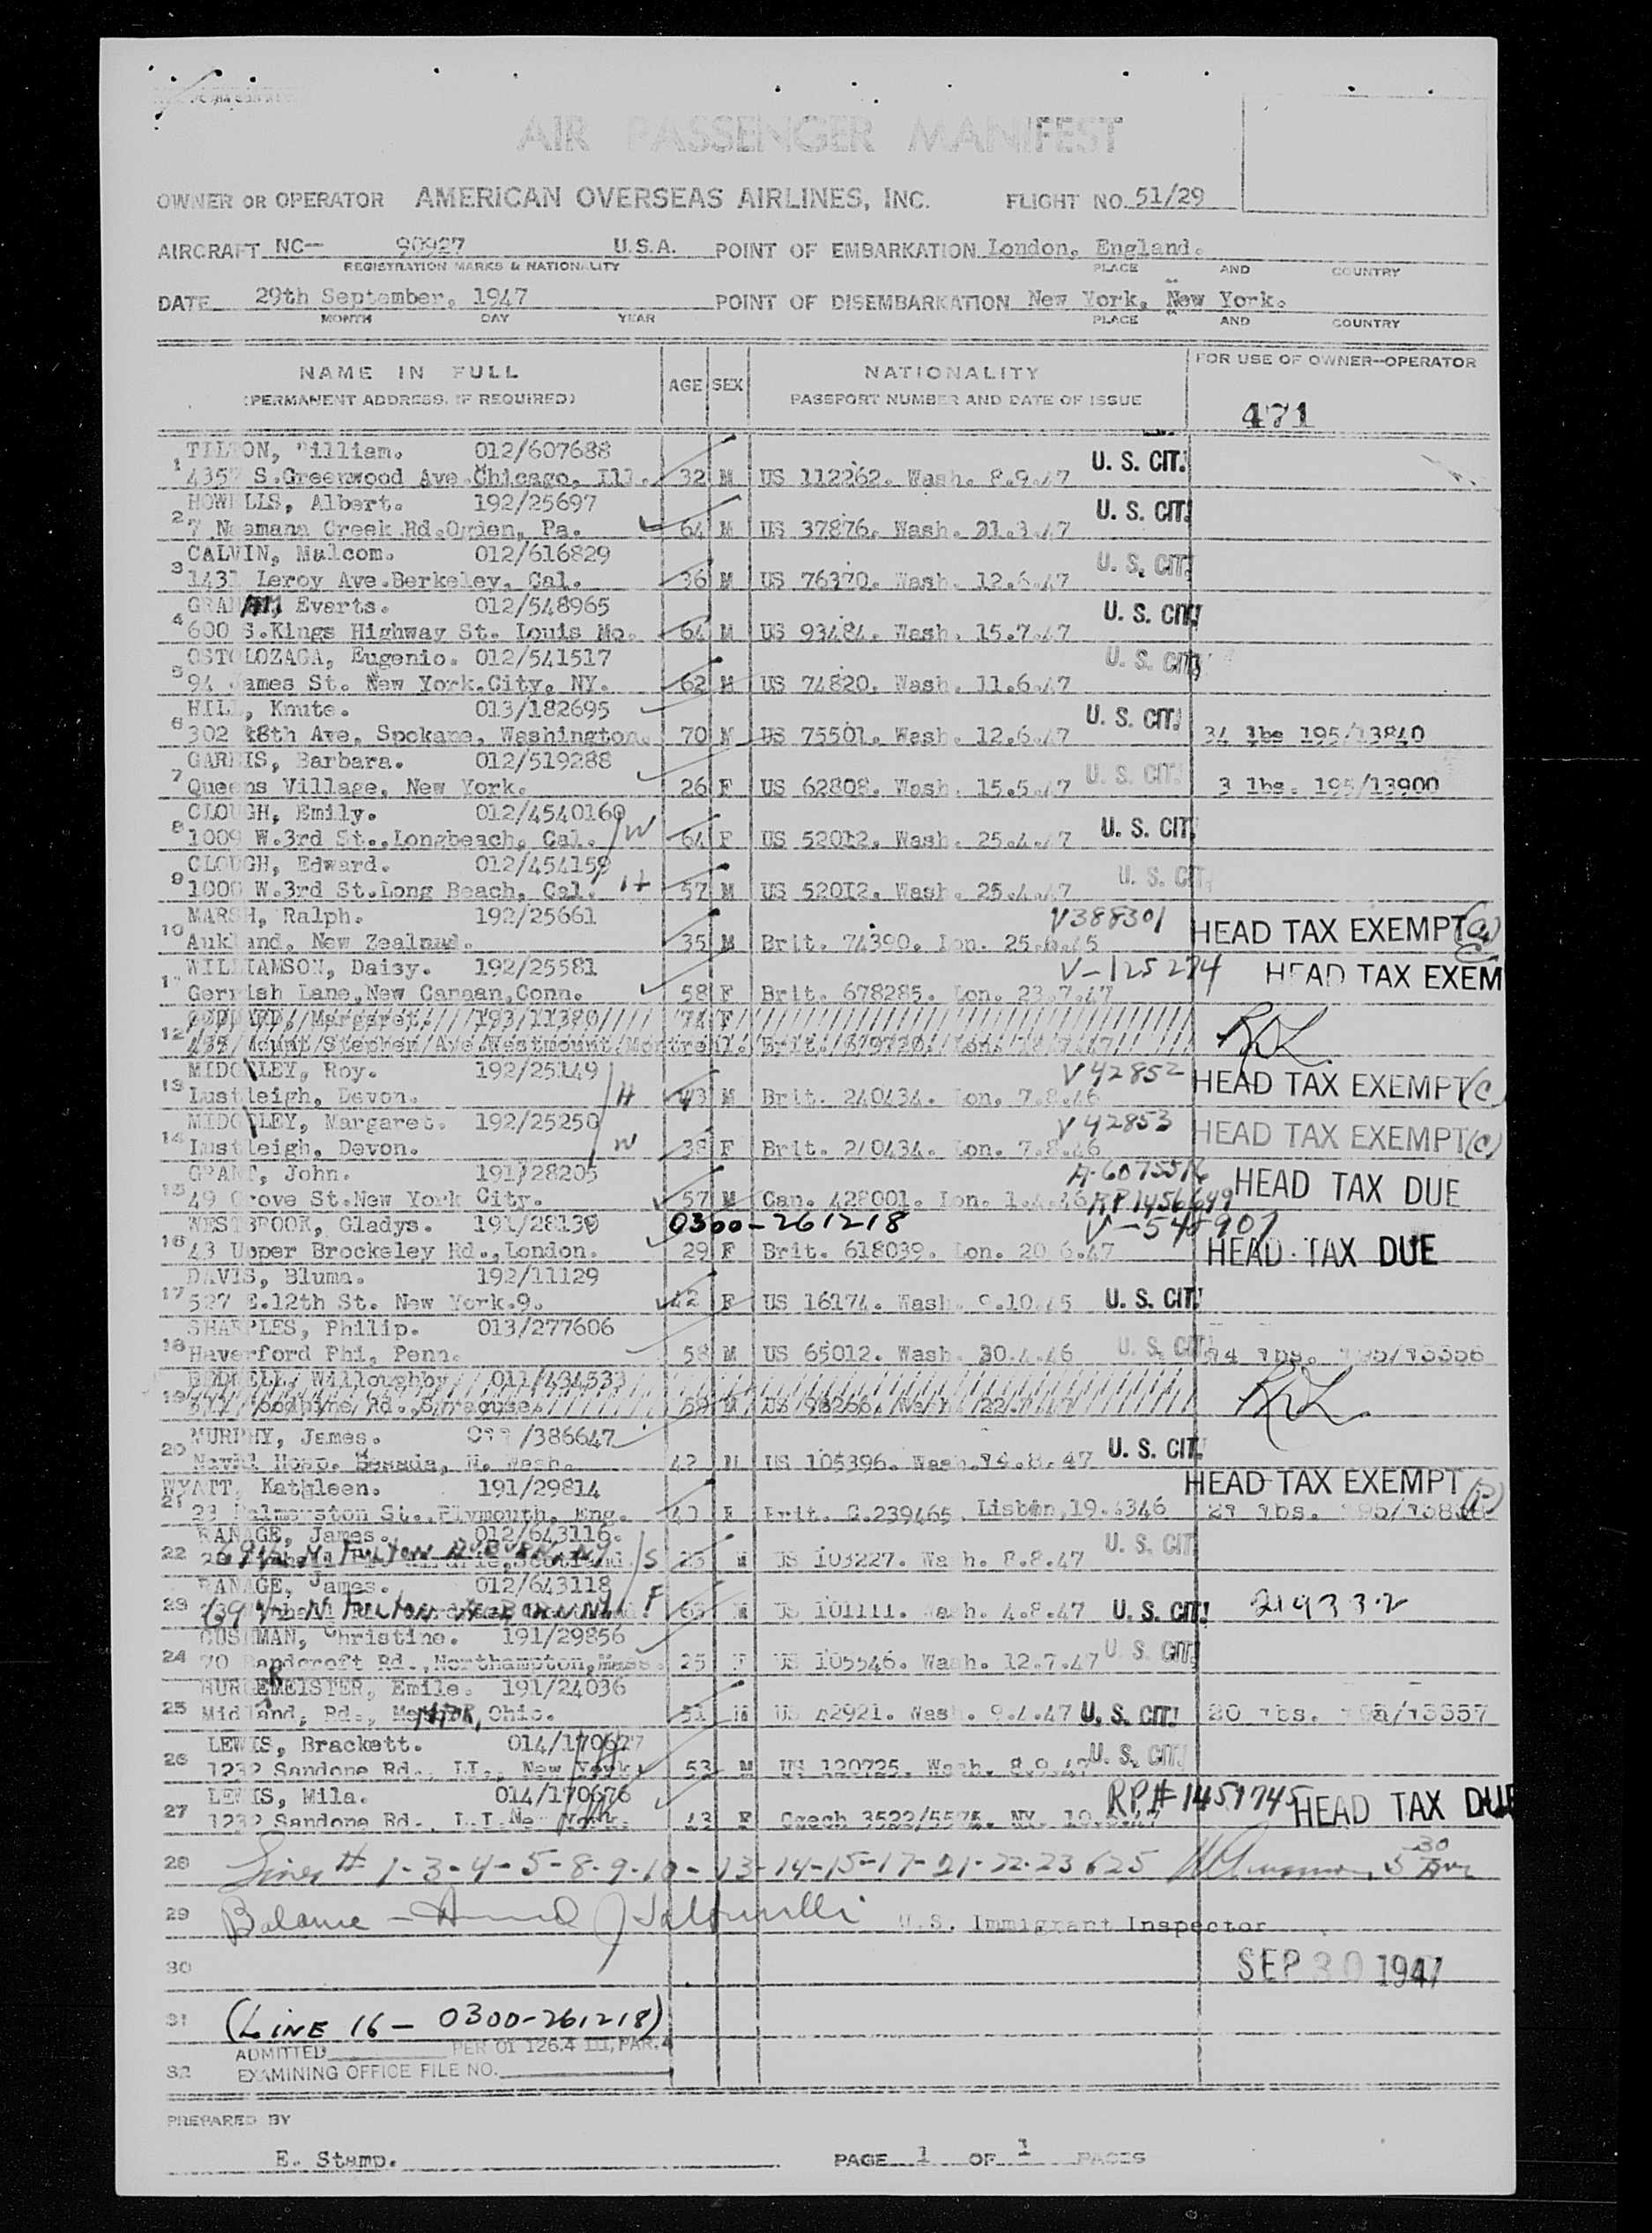 AIR PASSENGER MANIFEST
OWNER OR OPERATOR AMERICAN OVERSEAS AIRLINES, INC. FLIGHT NO. 51/29
AIRCRAFT NC— 90927 U.S.A. POINT OF EMBARKATION London, England.
REGISTRATION MARKS & NATIONALITY PLACE AND COUNTRY
DATE 29th September, 1947 POINT OF DISEMBARKATION New York, New York.
MONTH DAY YEAR PLACE AND COUNTRY
NAME IN FULL AGE SEX NATIONALITY FOR USE OF OWNER—OPERATOR
(PERMANENT ADDRESS, IF REQUIRED) PASSPORT NUMBER AND DATE OF ISSUE
471
TILTON, William. 012/607688 U. S. CIT.
1 4357 S.Greenwood Ave.Chicago, Ill. 32 M US 112262. Wash. 8.9.47
HOWELLS, Albert. 192/25697 U. S. CIT.
2 7 Naamans Creek Rd.Ogden, Pa. 64 M US 37876. Wash. 21.3.47
CALVIN, Malcom. 012/616829 U. S. CIT.
3 1431 Leroy Ave.Berkeley, Cal. 36 M US 76370. Wash. 12.6.47
GRAHAM, Evarts. 012/548965 U. S. CIT.
4 600 S.Kings Highway St. Louis Mo. 64 M US 93484. Wash. 15.7.47
OSTOLOZAGA, Eugenio. 012/541517 U. S. CIT.
5 94 James St. New York.City, NY. 62 M US 74820. Wash. 11.6.47
HILL, Knute. 013/182695 U. S. CIT.
6 302 18th Ave, Spokane, Washington. 70 M US 75501. Wash. 12.6.47 34 lbs 195/13840
GARRIS, Barbara. 012/519288 U. S. CIT.
7 Queens Village, New York. 26 F US 62808. Wash. 15.5.47 3 lbs. 195/13900
CLOUGH, Emily. 012/4540160 W U. S. CIT.
8 1009 W.3rd St.,Longbeach, Cal. 64 F US 52012. Wash. 25.4.47
CLOUGH, Edward. 012/454159 H U. S. CIT.
9 1000 W.3rd St.Long Beach, Cal. 57 M US 52012. Wash. 25.4.47
MARSH, Ralph. 192/25661 V388301 HEAD TAX EXEMPT
10 Aukland, New Zealand. 35 M Brit. 74390. Lon. 25.6.45
WILLIAMSON, Daisy. 192/25581 V-125274 HEAD TAX EXEM
Gerrish Lane,New Canaan,Conn. 58 F Brit. 678285. Lon. 23.7.47
Margaret. 193/11380 74 F
12 Mount Stephen Ave Westmount Montreal. Brit.
MIDGLEY, Roy. 192/25149 V42852 HEAD TAX EXEMPT (c)
13 Lustleigh, Devon. H 43 M Brit. 240434. Lon. 7.8.46
MIDGLEY, Margaret. 192/25250 V42853 HEAD TAX EXEMPT (c)
14 Lustleigh, Devon. W 38 F Brit. 240434. Lon. 7.8.46
GRANT, John. 191/28205 A-6075516 HEAD TAX DUE
15 49 Grove St.New York City. 57 M Can. 428001. Lon. 1.4.46 RP1456649
WESTBROOK, Gladys. 191/28130 0300-261218 V-545907
16 43 Upper Brockeley Rd.,London. 29 F Brit. 618039. Lon. 20.6.47 HEAD TAX DUE
DAVIS, Bluma. 192/11129
17 527 E.12th St. New York.9. 42 F US 16174. Wash. 9.10.45 U. S. CIT.
SHARPLES, Philip. 013/277606
18 Haverford Phi, Penn. 58 M US 65012. Wash. 30.4.46 U. S. CIT.
Willoughby 011/434533
19 Woodbine Rd.,Syracuse. 59 M
MURPHY, James. /386647 U. S. CIT.
20 Naval Hosp. 42 M US 105396. Wash.14.8.47
WYATT, Kathleen. 191/29814 HEAD TAX EXEMPT
21 Palmerston St.,Plymouth, Eng. 40 F Brit. C.239465 Lisbon,19. 346
RANAGE, James. 012/643116. U. S. CIT.
22 N. FULTON AUBURN NY S 25 M US 103227. Wash. 8.8.47
RANAGE, James. 012/643118
23 N FULTON AUBURN NY F 65 M US 101111. Wash. 4.8.47 U. S. CIT. 219332
CUSHMAN, Christine. 191/29856
24 70 Bandcroft Rd.,Northampton,Mass. 25 F US 105546. Wash. 12.7.47 U. S. CIT.
BURGEMEISTER, Emile. 191/24036
25 Midland, Rd., MENTOR, Ohio. 51 M US 42921. Wash. 9.4.47 U. S. CIT.
LEWIS, Brackett. 014/170677
26 1232 Sandone Rd., LI., New York. 53 M US 120725. Wash. 8.9.47 U. S. CIT.
LEWIS, Mila. 014/170676 RP# 1451745 HEAD TAX DUE
27 1232 Sandone Rd., L.I.New York. 43 F Czech 3522/5575. NY.
28 Lines # 1-3-4-5-8-9-10-13-14-15-17-21-22-23 & 25
29 Balance — U.S. Immigrant Inspector
30 SEP 30 1947
31 (LINE 16 — 0300-261218)
ADMITTED PER OI 126.4 III, PAR. 4
32 EXAMINING OFFICE FILE NO.
PREPARED BY
E. Stamp. PAGE 1 OF 1 PAGES